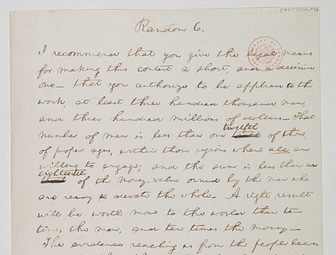 Random 6.
I recommend that you give the legal means
for making this contest a short, and a decisive
one— that you authorize to be applied to the
work, at least three hundred thousand men,
and three hundred millions of dollars— That
number of men is less than one twelfth of those
of proper ages, within those regions where all are
willing to engage; and the sum is less than an
eighteenth of the money value owned by the men who
are ready to devote the whole— A right result
will be worth more to the world than ten
times the men, and ten times the money—
The evidence reaching us from the people leaves